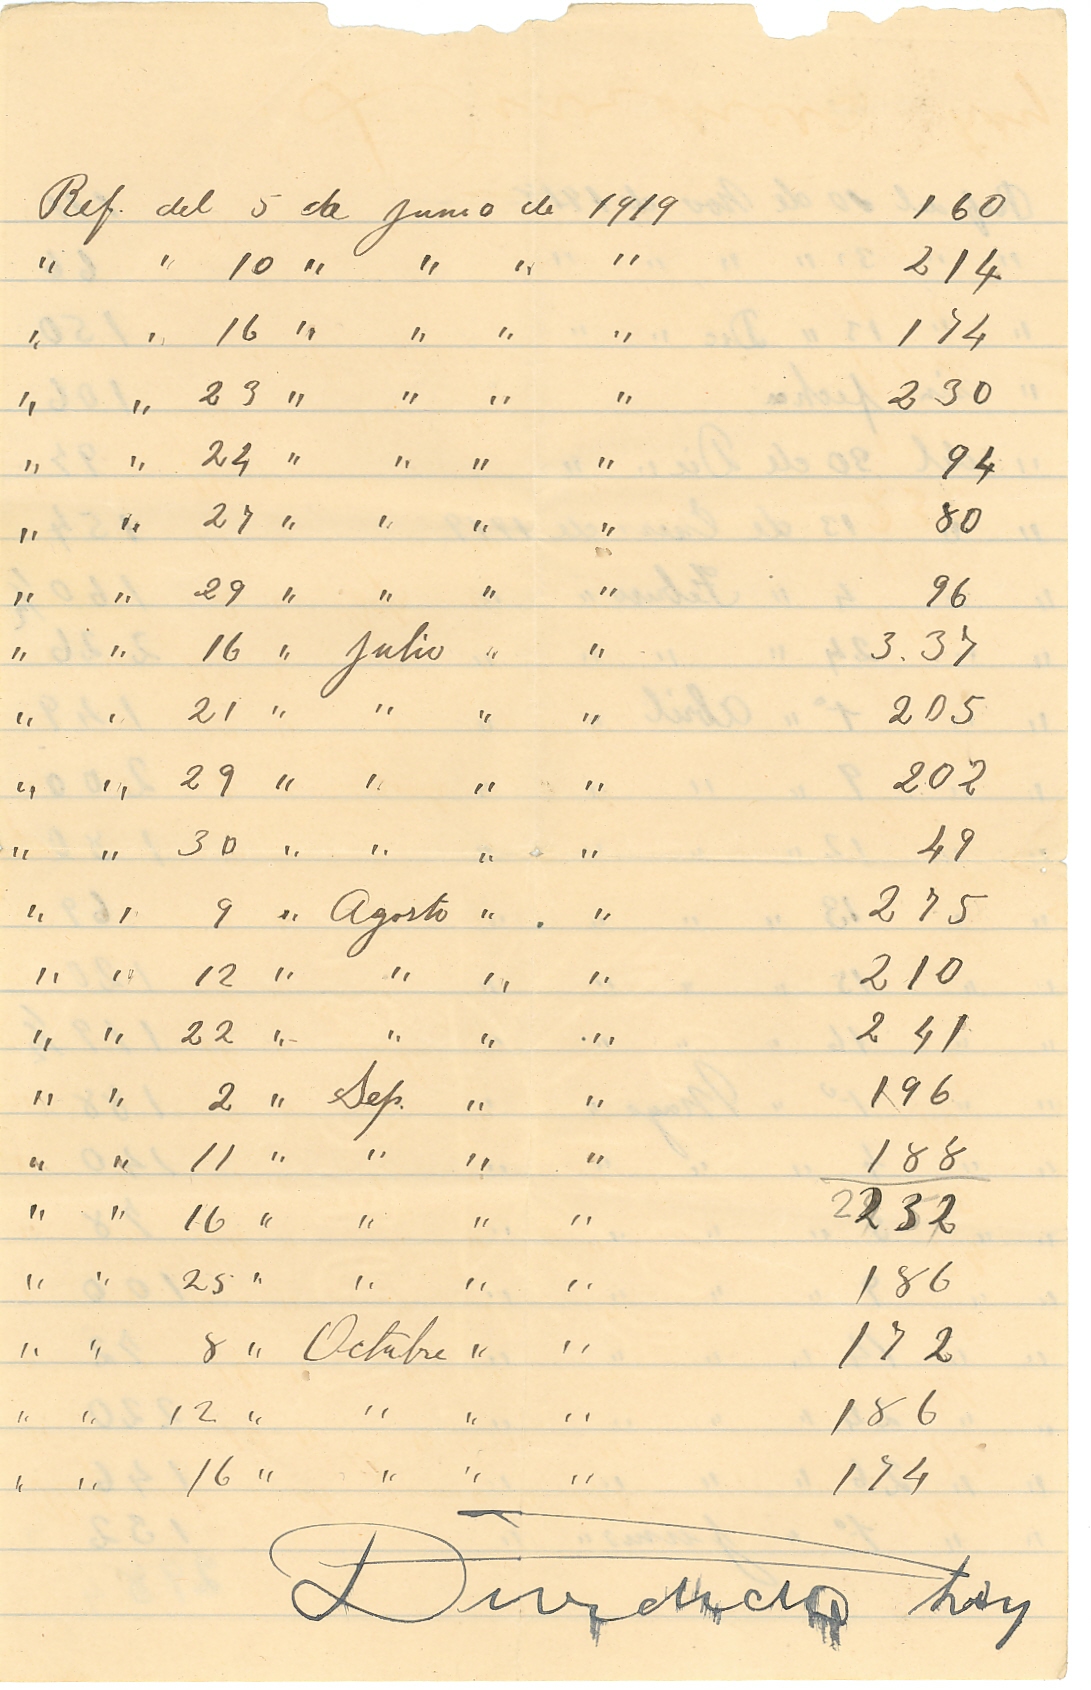 Ref. del 5 de Junio de 1919 160
" " 10 " " " " 214
" " 16 " " " " 174
" " 23 " " " " 230
" " 24 " " " " 94
" " 27 " " " " 80
" " 29 " " " " 96
" " 16 " Julio " " 3.37
" " 21 " " " " 205
" " 29 " " " " 202
" " 30 " " " " 49
" " 9 " Agosto " " 275
" " 12 " " " " 210
" " 22 " " " " 241
" " 2 " Sep. " " 196
" " 11 " " " " 188
" " 16 " " " " 232
" " 25 " " " " 186
" " 8 " Octubre " " 172
" " 12 " " " " 186
" " 16 " " " " 174
hoy